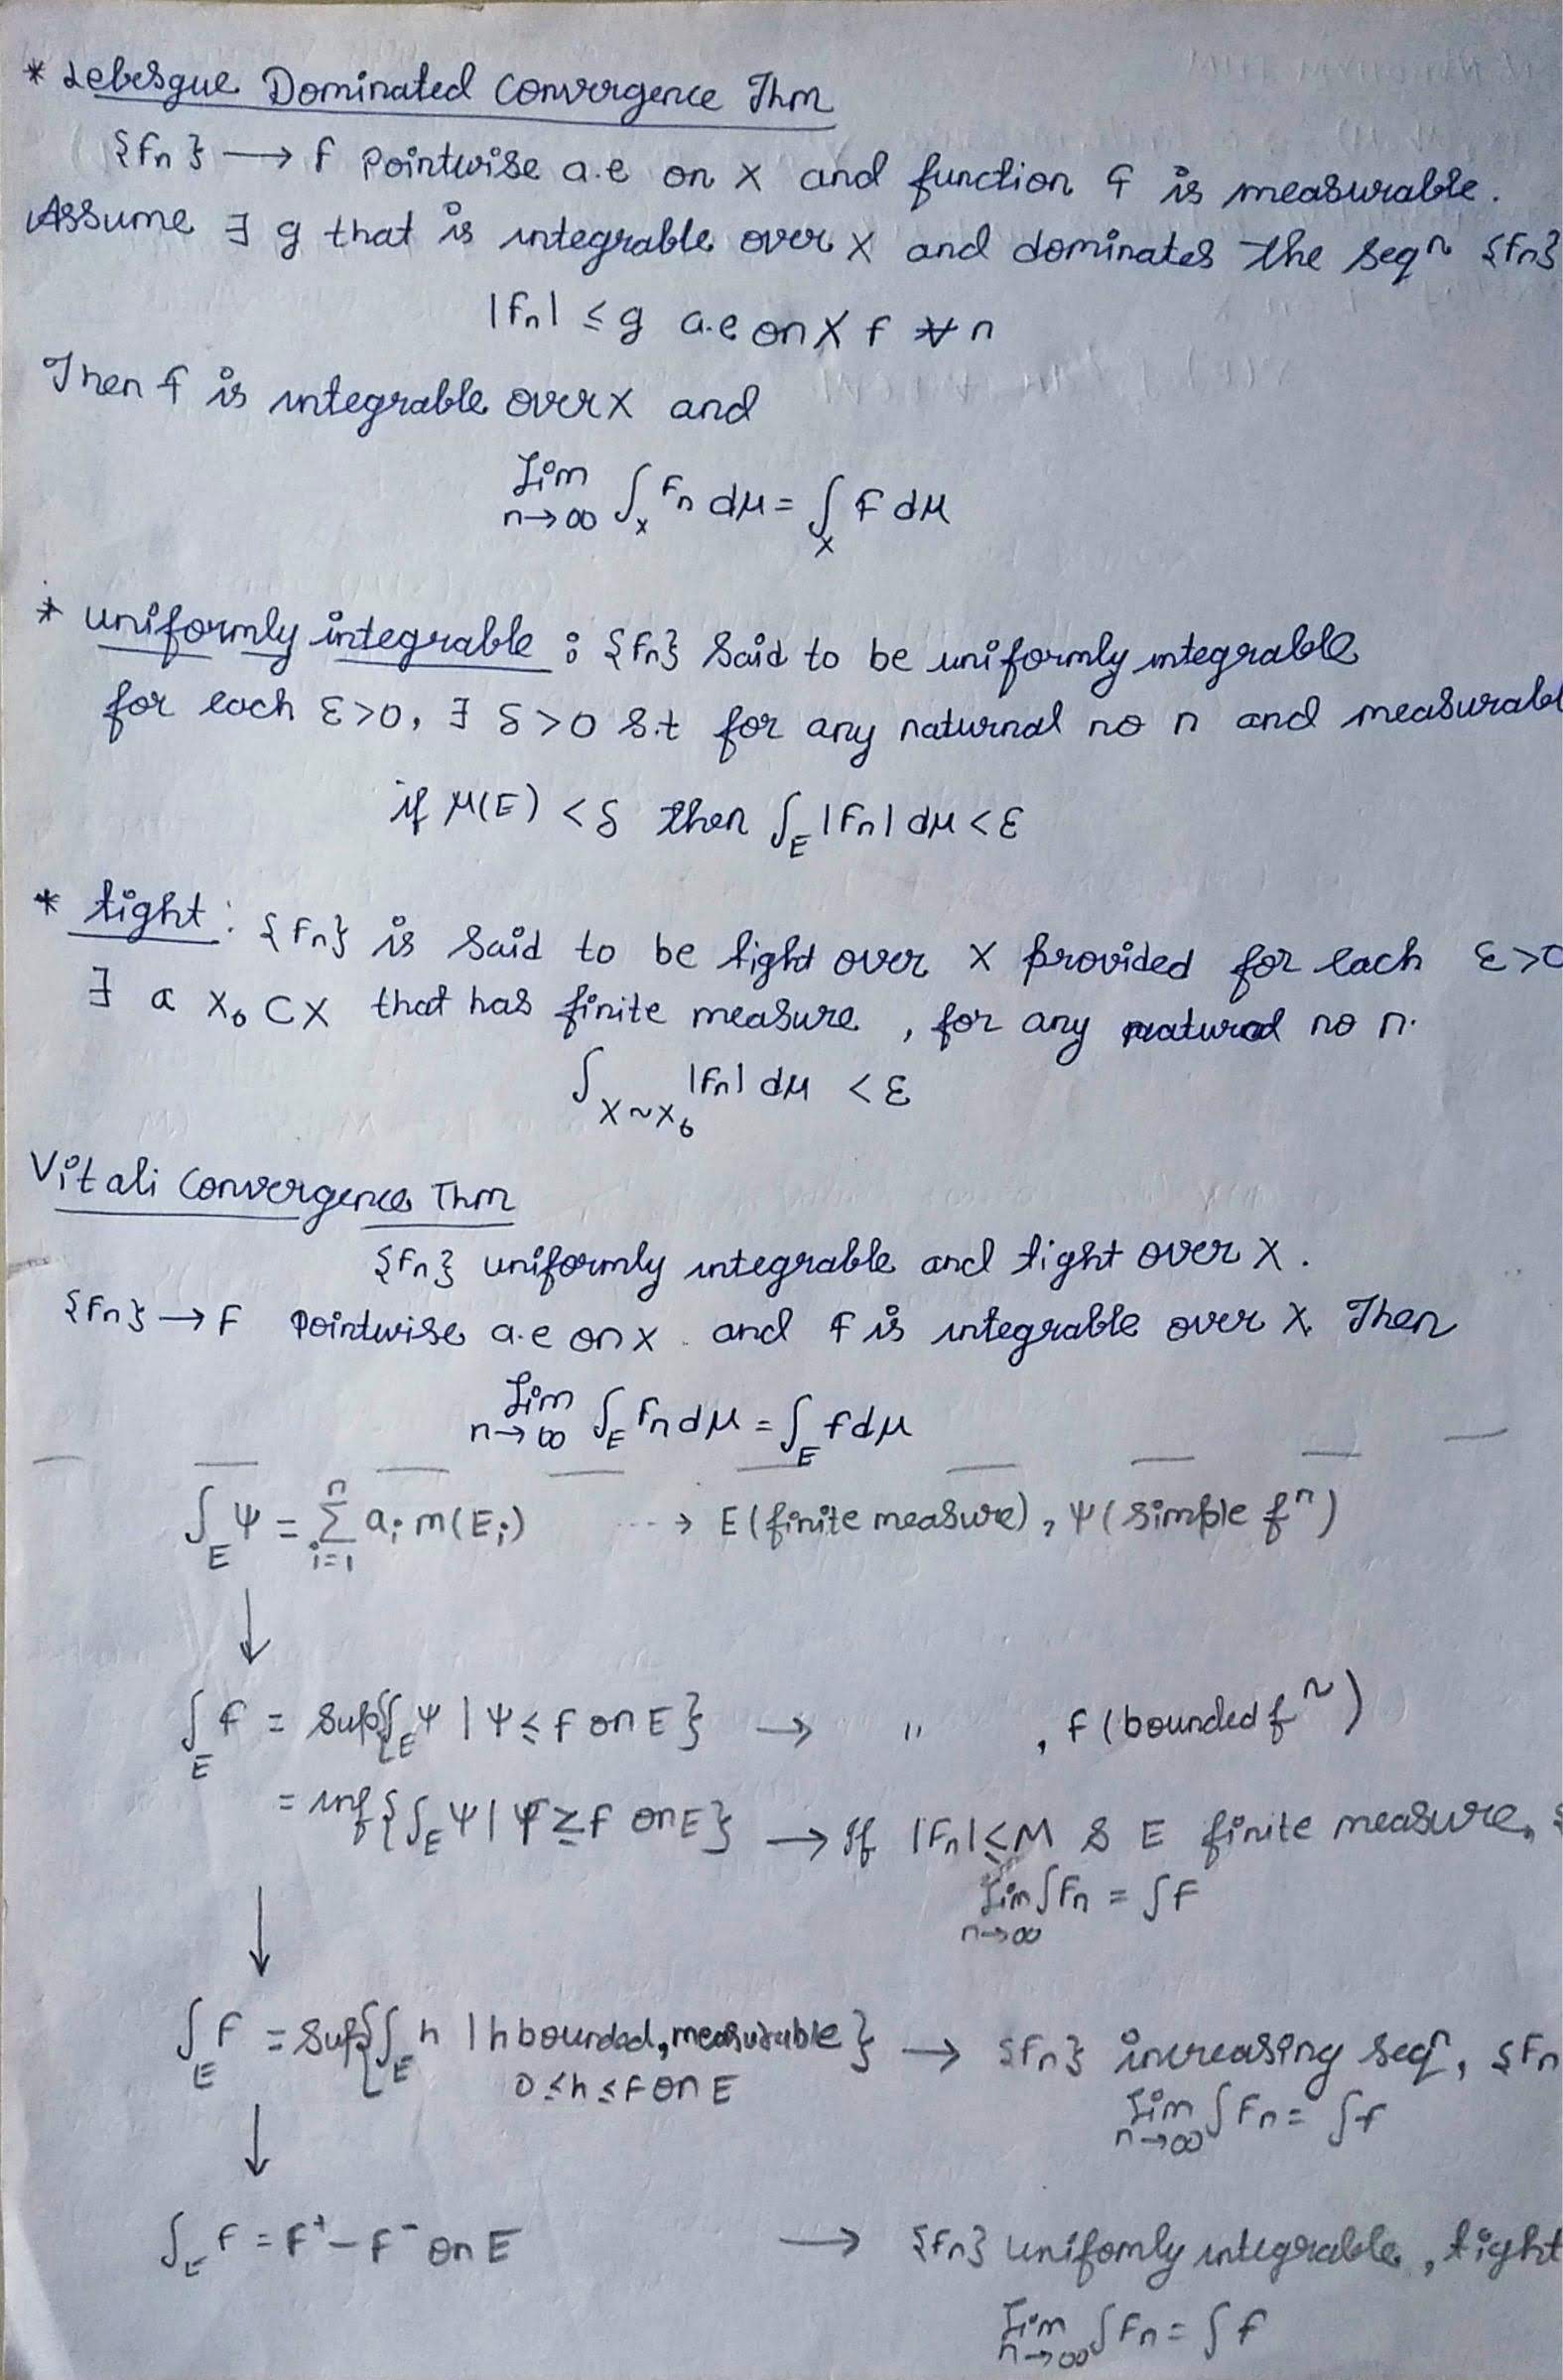 * Lebesgue Dominated Convergence Thm
{fn} → f Pointwise a.e on X and function f is measurable.
Assume ∃ g that is integrable over X and dominates the seqn {fn}
|fn| ≤ g a.e on X f ∀ n
Then f is integrable over X and
Lim n→∞ ∫_X fn dμ = ∫_X f dμ
* uniformly integrable : {fn} Said to be uniformly integrable
for each ε>0, ∃ δ>0 s.t for any naturnal no n and measurabl
if μ(E) < δ then ∫_E |fn| dμ < ε
* tight : {fn} is said to be tight over X provided for each ε>0
∃ a X₀ ⊂ X that has finite measure , for any natural no n.
∫_{X~X₀} |fn| dμ < ε
Vitali Convergence Thm
{fn} uniformly integrable and tight over X.
{fn} → f Pointwise a.e on X. and f is integrable over X. Then
Lim n→∞ ∫_E fn dμ = ∫_E f dμ
∫_E ψ = Σ_{i=1}^n a_i m(E_i) ---> E (finite measure), ψ (simple fn)
↓
∫_E f = sup{∫_E ψ | ψ ≤ f on E} → " , f (bounded fn)
= inf{∫_E ψ | ψ ≥ f on E} → If |fn| ≤ M & E finite measure,
Lim n→∞ ∫fn = ∫f
↓
∫_E f = sup{∫_E h | h bounded, measurable} → {fn} increasing seqn, {fn
0 ≤ h ≤ f on E
Lim n→∞ ∫fn = ∫f
↓
∫_E f = f⁺ - f⁻ on E → {fn} unifomly integrable, tight
Lim n→∞ ∫fn = ∫f